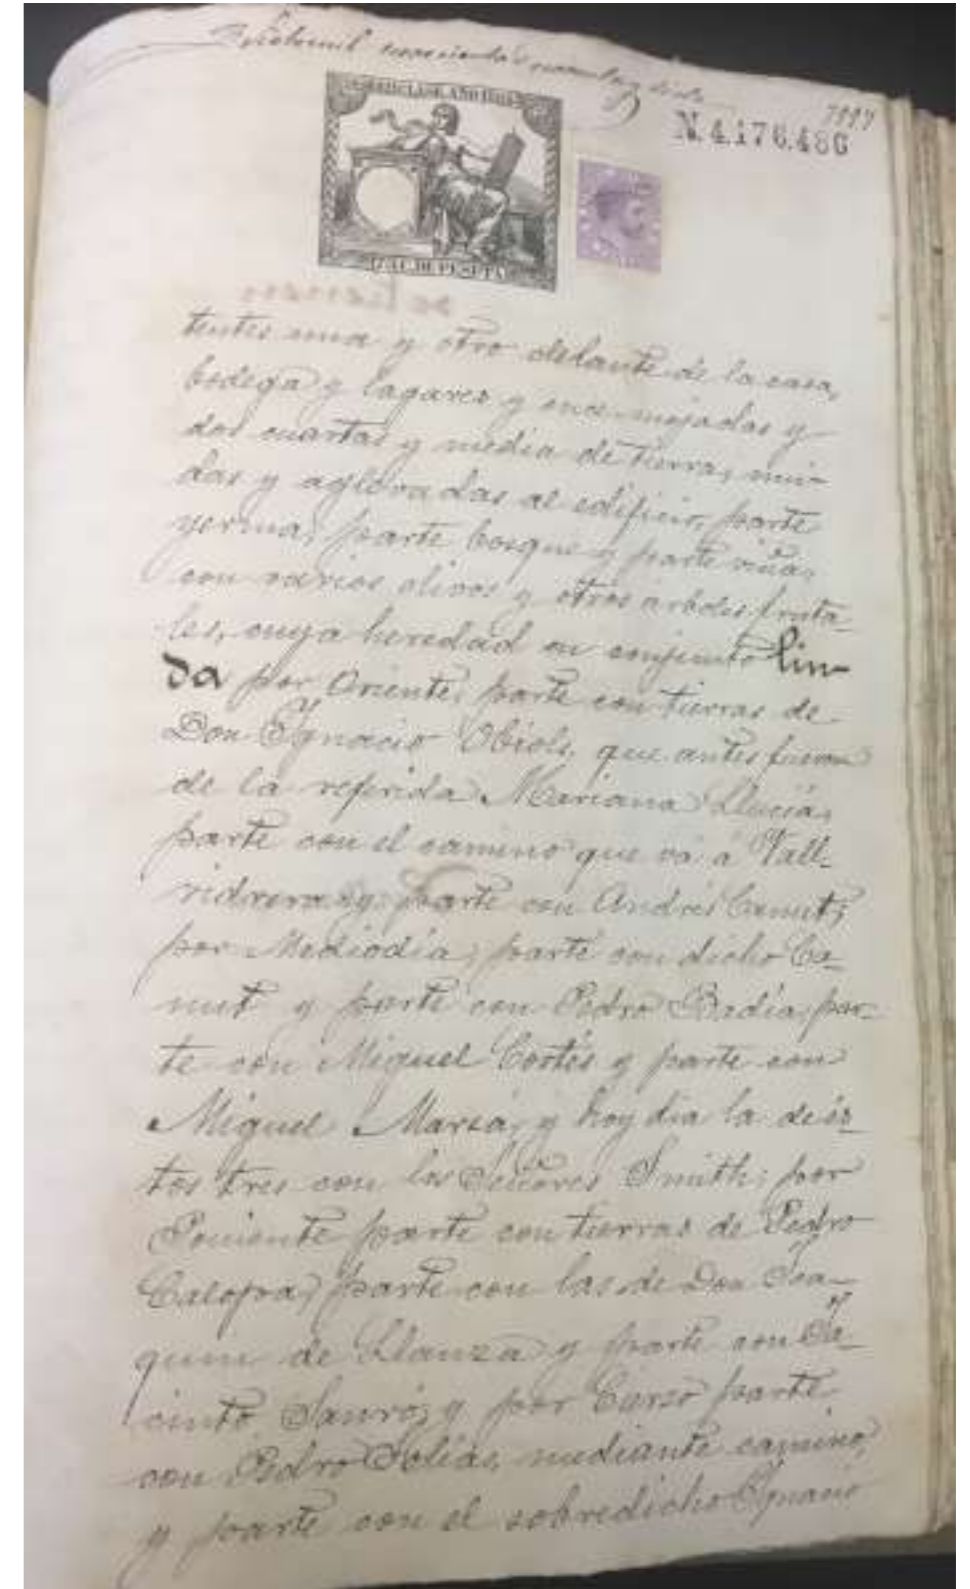 N. 4.176.486
tentes una y otro delante de la casa,
bodega y lagares y once mojadas y
dos cuartas y media de tierra, uni-
das y aglevadas al edificio, parte
yerma, parte bosque y parte viña,
con varios olivos y otros arboles fruta-
les, cuya heredad en conjunto lin-
da por Oriente, parte con tierras de
Don Ygnacio Obiols, que antes fueron
de la referida Mariana Llucia,
parte con el camino que vá á Vall-
vidrera y parte con Andrés Canut;
por Mediodia, parte con dicho Ca-
nut y parte con Pedro Badía, par-
te con Miguel Cortés y parte con
Miguel Marsá, y hoy dia la de és-
tos tres con los Señores Smith; por
Poniente parte con tierras de Pedro
Calopa, parte con las de Don Joa-
quin de Llanza y parte con Ja-
cinto y por Cierzo parte
con Pedro mediante camino,
y parte con el sobredicho Ygnacio